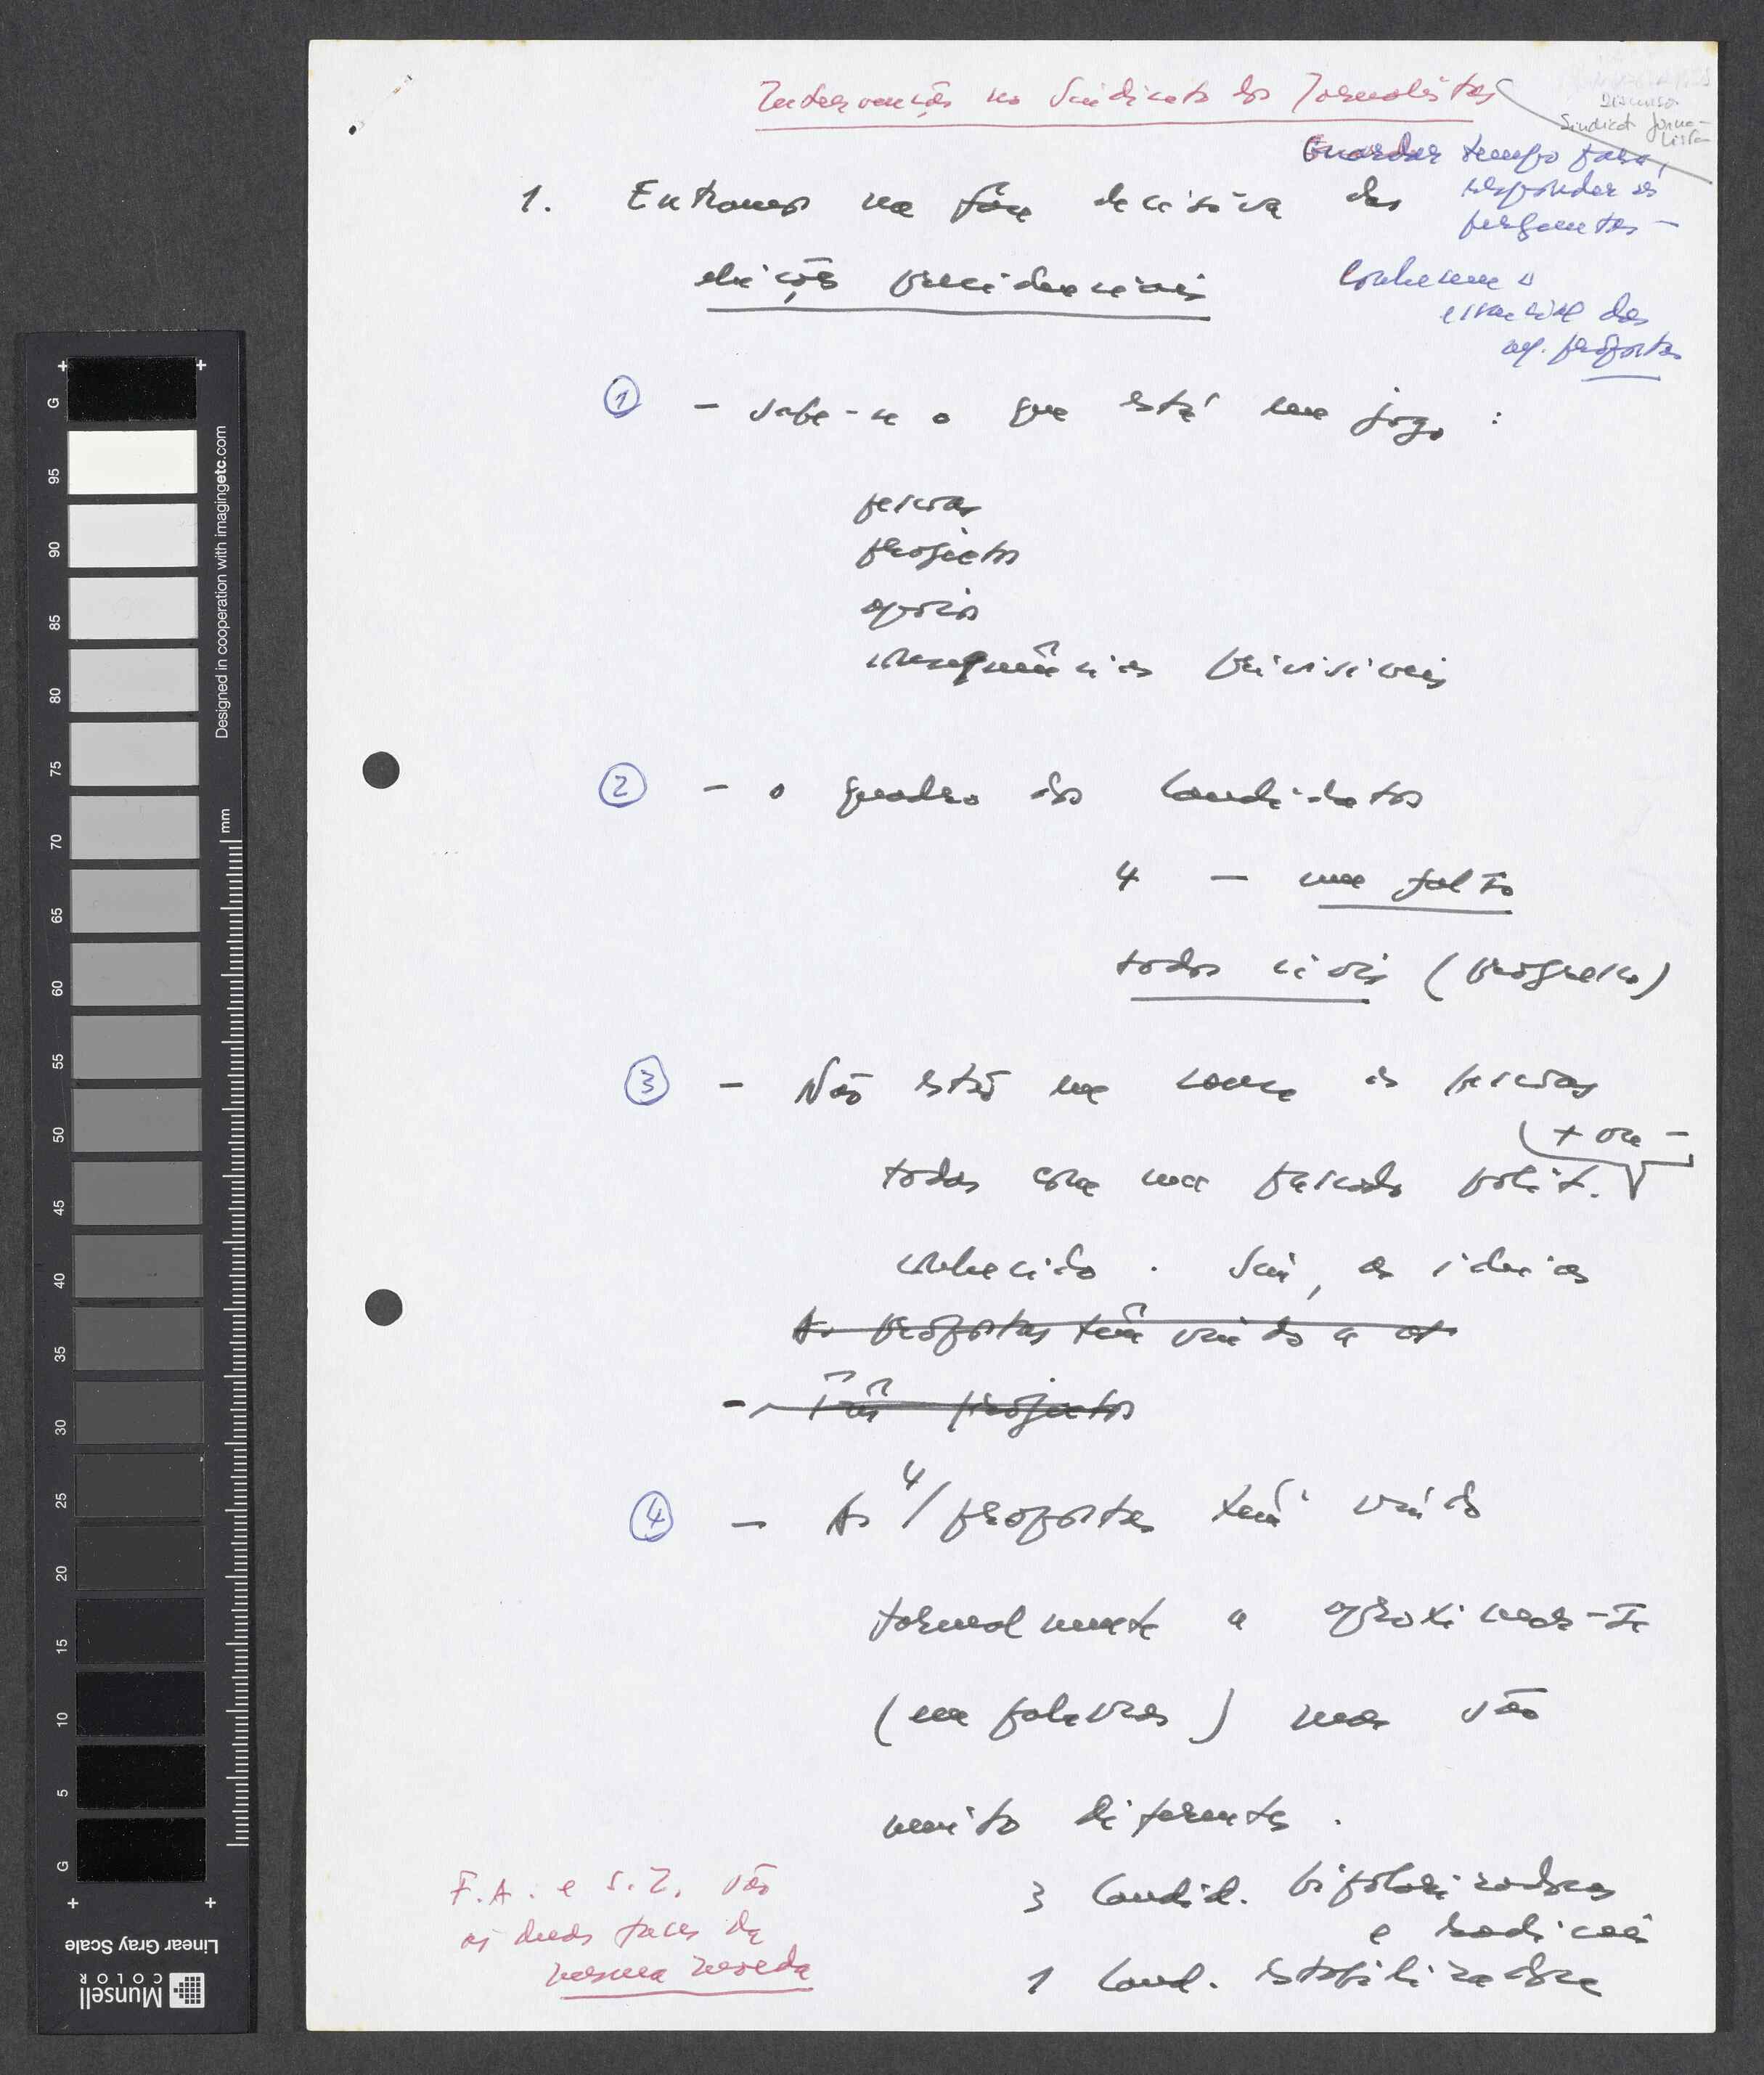 Intervenção no Sindicato dos Jornalistas
Discurso
Sindicat. Jorna-
lista
Guardar tempo para
responder às
perguntas -
1. Entramos na fase decisiva das
eleições presidenciais
Conhecem o
essencial das
propostas
① - Sabe-se o que está em jogo :
pessoas
projectos
apoios
consequências previsíveis
② - o quadro dos Candidatos
4 - em falta
todos civis (progresso)
③ - Não estão em causa as pessoas
(+ ou -
todas com um passado polít.
conhecido. Sim, as ideias
As propostas têm vindo a
- Três projectos
④ - As 4/ propostas têm vindo
formalmente a aproximar-se
(em palavras) mas são
muito diferentes.
3 Candid. bipolarizadoras
e radicais
1 Cand. estabilizadora
F.A. e S.Z. são
as duas faces da
mesma moeda
G 95 90 85 80 75 70 65 60 55 50 45 40 35 30 25 20 15 10 5 G
mm
Designed in cooperation with imagingetc.com
Linear Gray Scale
Munsell
COLOR